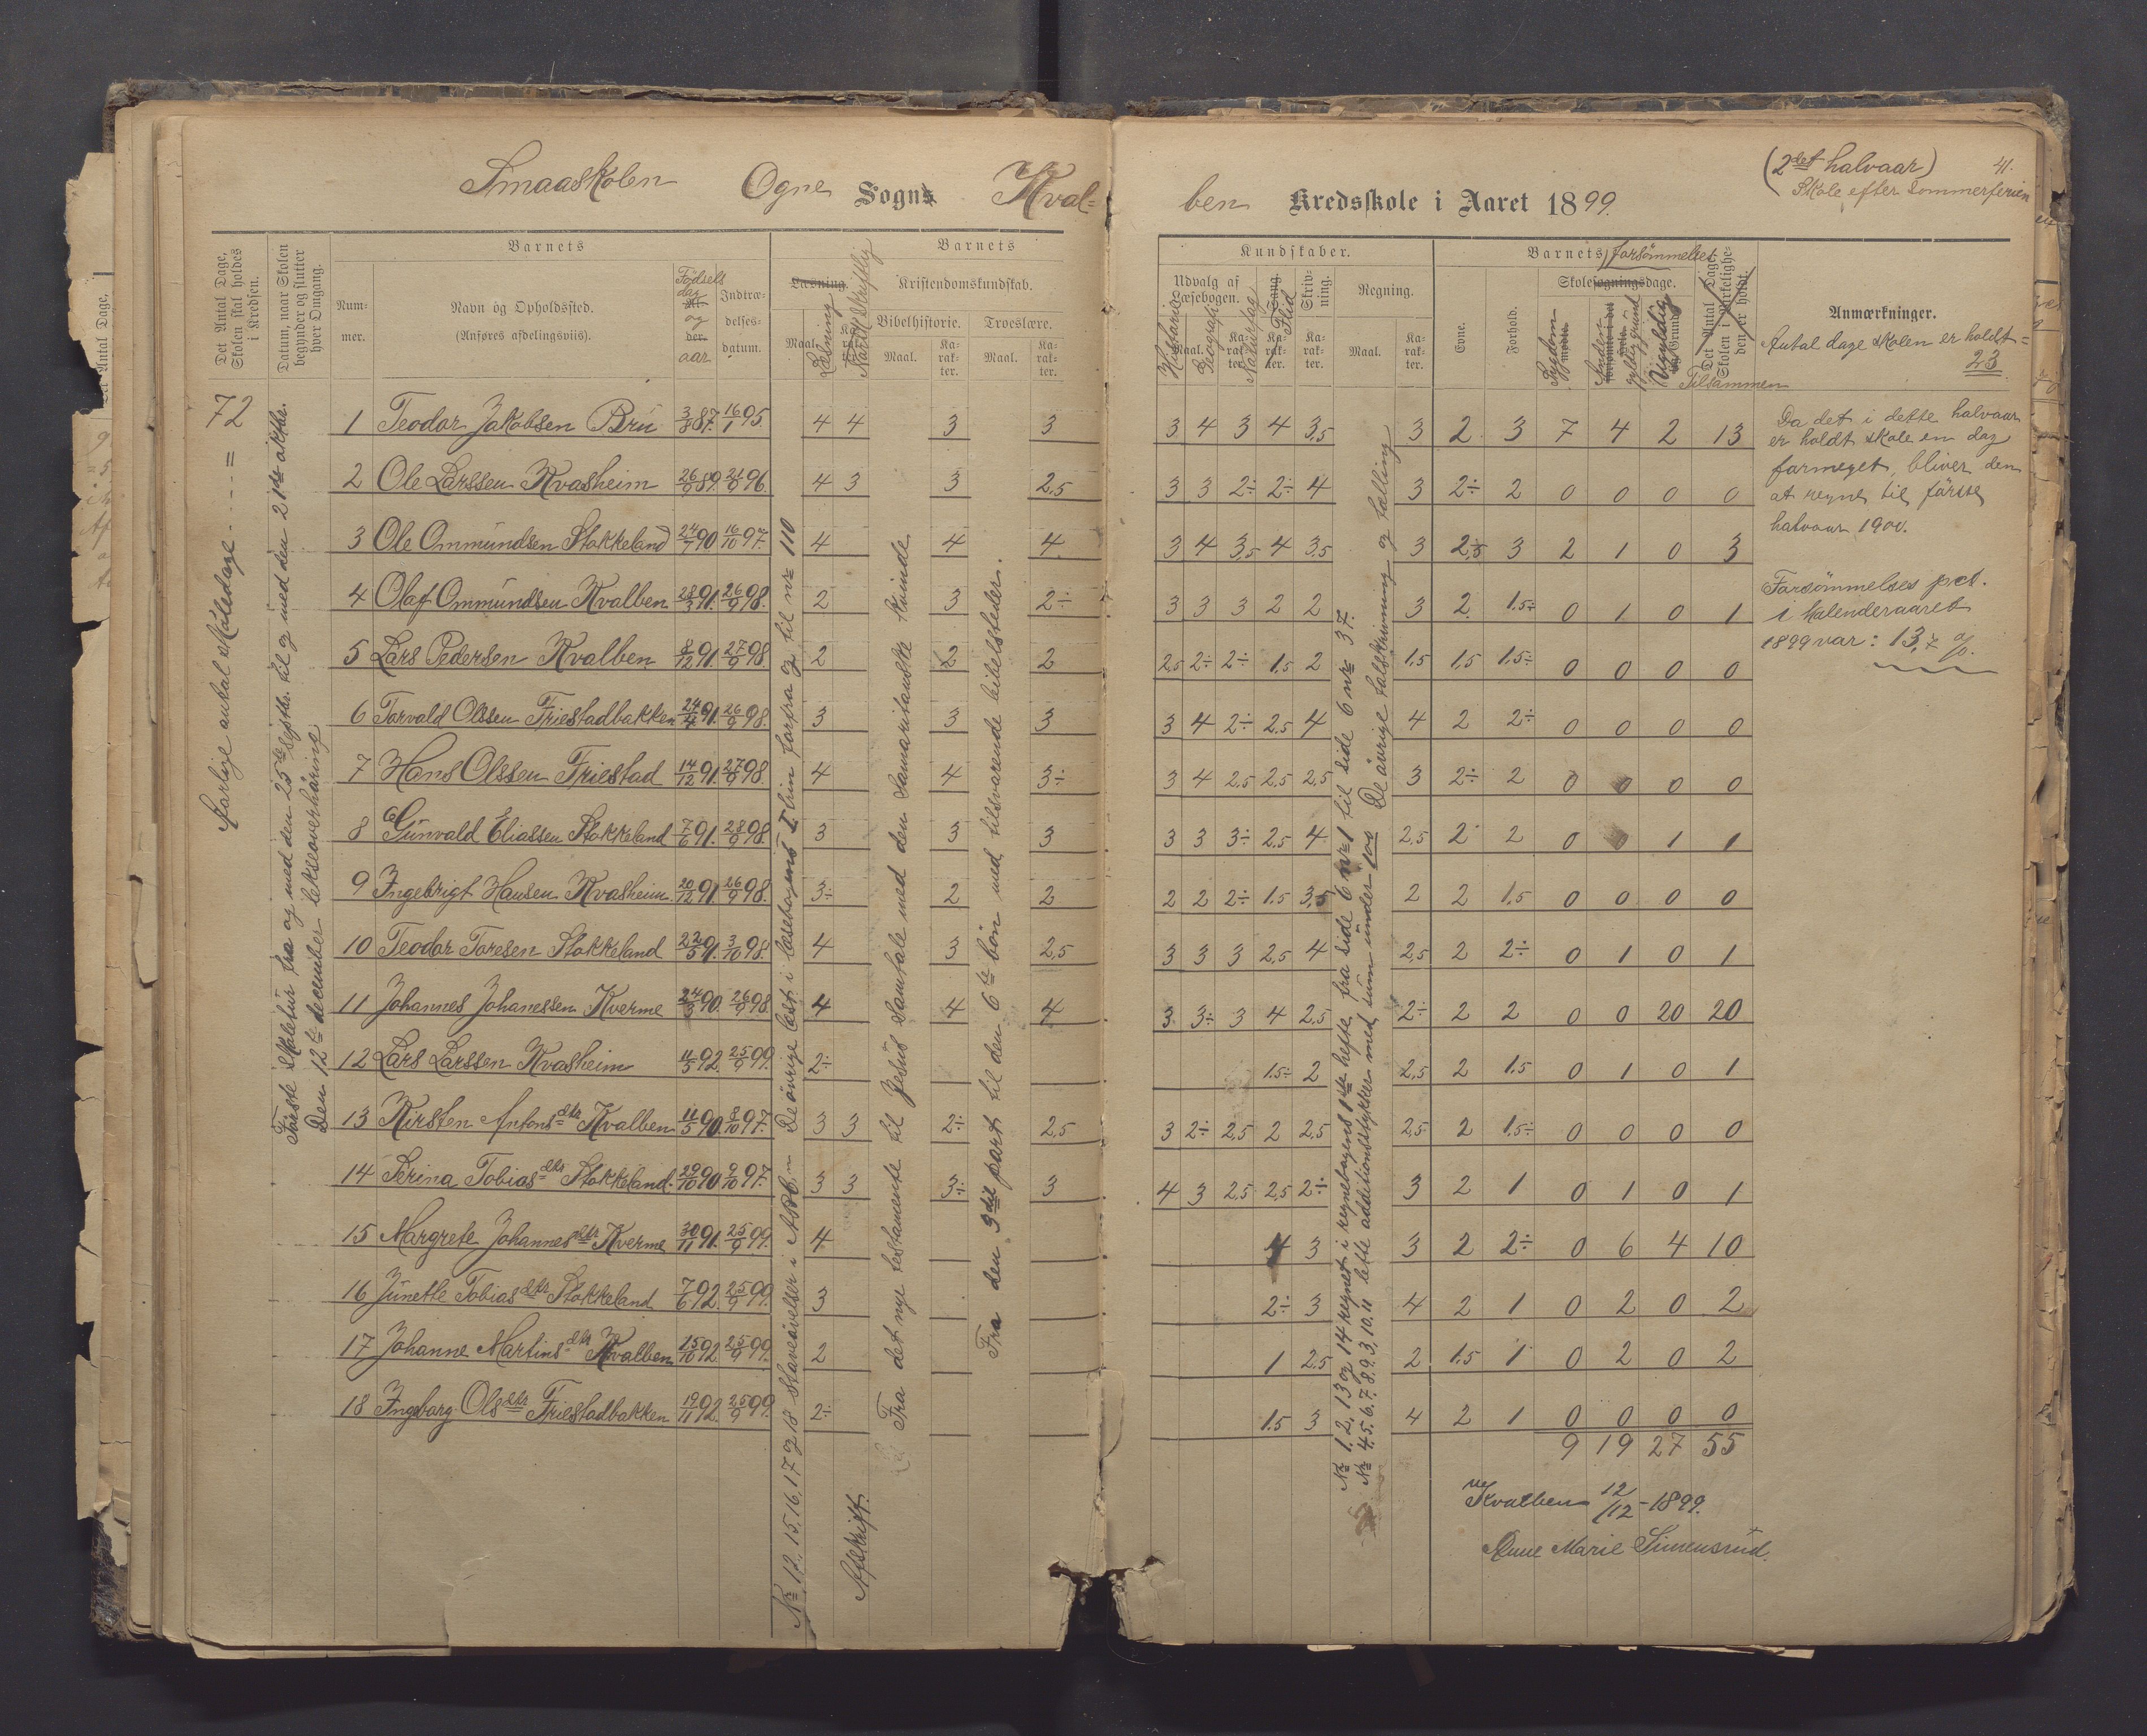 Smaaskolen Ogne Sogns Kval-
ben Kredsskole i Aaret 1899.
(2det halvaar)
Skole efter Sommerferien
41.
Det Antal Dage, Skolen skal holdes i Kredsen.
Datum, naar Skolen begynder og slutter hver Omgang.
Barnets
Nummer.
Navn og Opholdssted.
(Anføres afdelingsviis).
Fødselsdag og aar
Indtrædelsesdatum.
Barnets
Læsning.
Læsning
Maal.
Norsk Skriftlig
Kristendomskundskab.
Bibelhistorie.
Troeslære.
Maal.
Karakter.
Maal.
Karakter.
Kundskaber.
Udvalg af Læsebogen.
Historie
Geografi
Naturfag
Sang.
Flid
Skrivning.
Regning.
Maal.
Karakter.
Barnets forsømmelser
Evne.
Forhold.
Skolesøgningsdage.
Sygdom
Ugyldig Grund
Det Antal Dage Skolen i Virkeligheden er holdt.
Tilsammen
Anmærkninger.
Antal dage skolen er holdt =
23
72
Aarlige antal skoledage - - - - =
Første skoletur fra og med den 25de septbr. til og med den 21de oktbr.
Den 12te december lekseoverhøring
1 Teodor Jakobsen Bru 3/8 87. 16/1 95. 4 4 3 3 3 4 3 4 3,5 3 2 3 7 4 2 13
2 Ole Larssen Kvasheim 26/9 89. 21/9 96. 4 3 3 2,5 3 3 2÷ 2÷ 4 3 2÷ 2 0 0 0 0
3 Ole Ommundsen Stokkeland 24/7 90. 16/10 97. 4 4 4 3 4 3,5 4 3,5 3 2,5 3 2 1 0 3
4 Olaf Ommundsen Kvalben 28/3 91. 26/9 98. 2 3 2÷ 3 3 3 2 2 3 2 1.5÷ 0 1 0 1
5 Lars Pedersen Kvalben 8/12 91. 27/9 98. 2 2 2 2,5 2÷ 2÷ 1,5 2 1,5 1,5 1,5÷ 0 0 0 0
6 Torvald Olssen Friestadbakken 24/4 91. 26/9 98. 3 3 3 3 4 2÷ 2.5 4 4 2 2÷ 0 0 0 0
7 Hans Olssen Friestad 14/12 91. 27/9 98. 4 4 3÷ 3 4 2,5 2,5 2,5 3 2÷ 2 0 0 0 0
8 Gunvald Eliassen Stokkeland 7/6 91. 28/9 98. 3 3 3 3 3 3÷ 2,5 4 2,5 2 2 0 0 1 1
9 Ingebrigt Hansen Kvasheim 20/12 91. 26/9 98. 3÷ 2 2 2 2 2÷ 1.5 3,5 2 2 1,5 0 0 0 0
10 Teodor Toresen Stokkeland 22/5 91. 3/10 98. 4 3 2,5 3 3 3 2,5 4 2,5 2 2÷ 0 1 0 1
11 Johannes Johanessen Kverme 24/3 90. 26/9 98. 4 4 4 3 3÷ 3 4 2,5 2÷ 2 2 0 0 20 20
12 Lars Larssen Kvasheim 11/5 92. 25/9 99. 2÷ 1.5÷ 2 2,5 2 1.5 0 1 0 1
13 Kirsten Antonsdtr Kvalben 11/5 90. 8/10 97. 3 3 2÷ 2,5 3 2÷ 2,5 2 2,5 2,5 2 1,5÷ 0 0 0 0
14 Serina Tobiasdtr Stokkeland. 29/10 90 9/10 97. 3 3 3÷ 3 4 3 2,5 2,5 2÷ 3 2 1 0 1 0 1
15 Margrete Johannesdtr Kverme 30/11 91. 25/9 99. 4 4 3 3 2 2÷ 0 6 4 10
16 Junette Tobiasdtr Stokkeland 7/6 92. 25/9 99. 3 2÷ 3 4 2 1 0 2 0 2
17 Johanne Martinsdtr Kvalben 15/10 92 25/9 99. 2 1 2,5 2 1.5 1 0 2 0 2
18 Ingeborg Olsdtr Friestadbakken 19/11 92. 25/9 99. 2÷ 1.5 3 4 2 1 0 0 0 0
9 19 27 55
No 12, 15, 16, 17 og 18 staveøvelser i ABC.n De øvrige læst i læsebogens I trin forfra og til nr 110
Afskrift.
Fra det nye testamente til Jesus Samtale med den Samaritanske kvinde
Fra den 3die part til den 6te bøn med tilsvarende bibelsteder.
Nr 1. 2. 13 og 14 regnet i regnebogens 1ste hefte fra side 6 nr 1 til side 6 nr 37.
Nr 4.5.6.7.8.9.3.10.11 lette additionsstykker med sum under 100 De øvrige talskrivning og tælling
Da det i dette halvaar
er holdt skole en dag
formeget, bliver den
at regne til første
halvaar 1900.
Forsømmelses pct.
i kalenderaaret
1899 var : 13,7 %.
Kvalben 12/12 - 1899.
Anne Marie Simensrud.